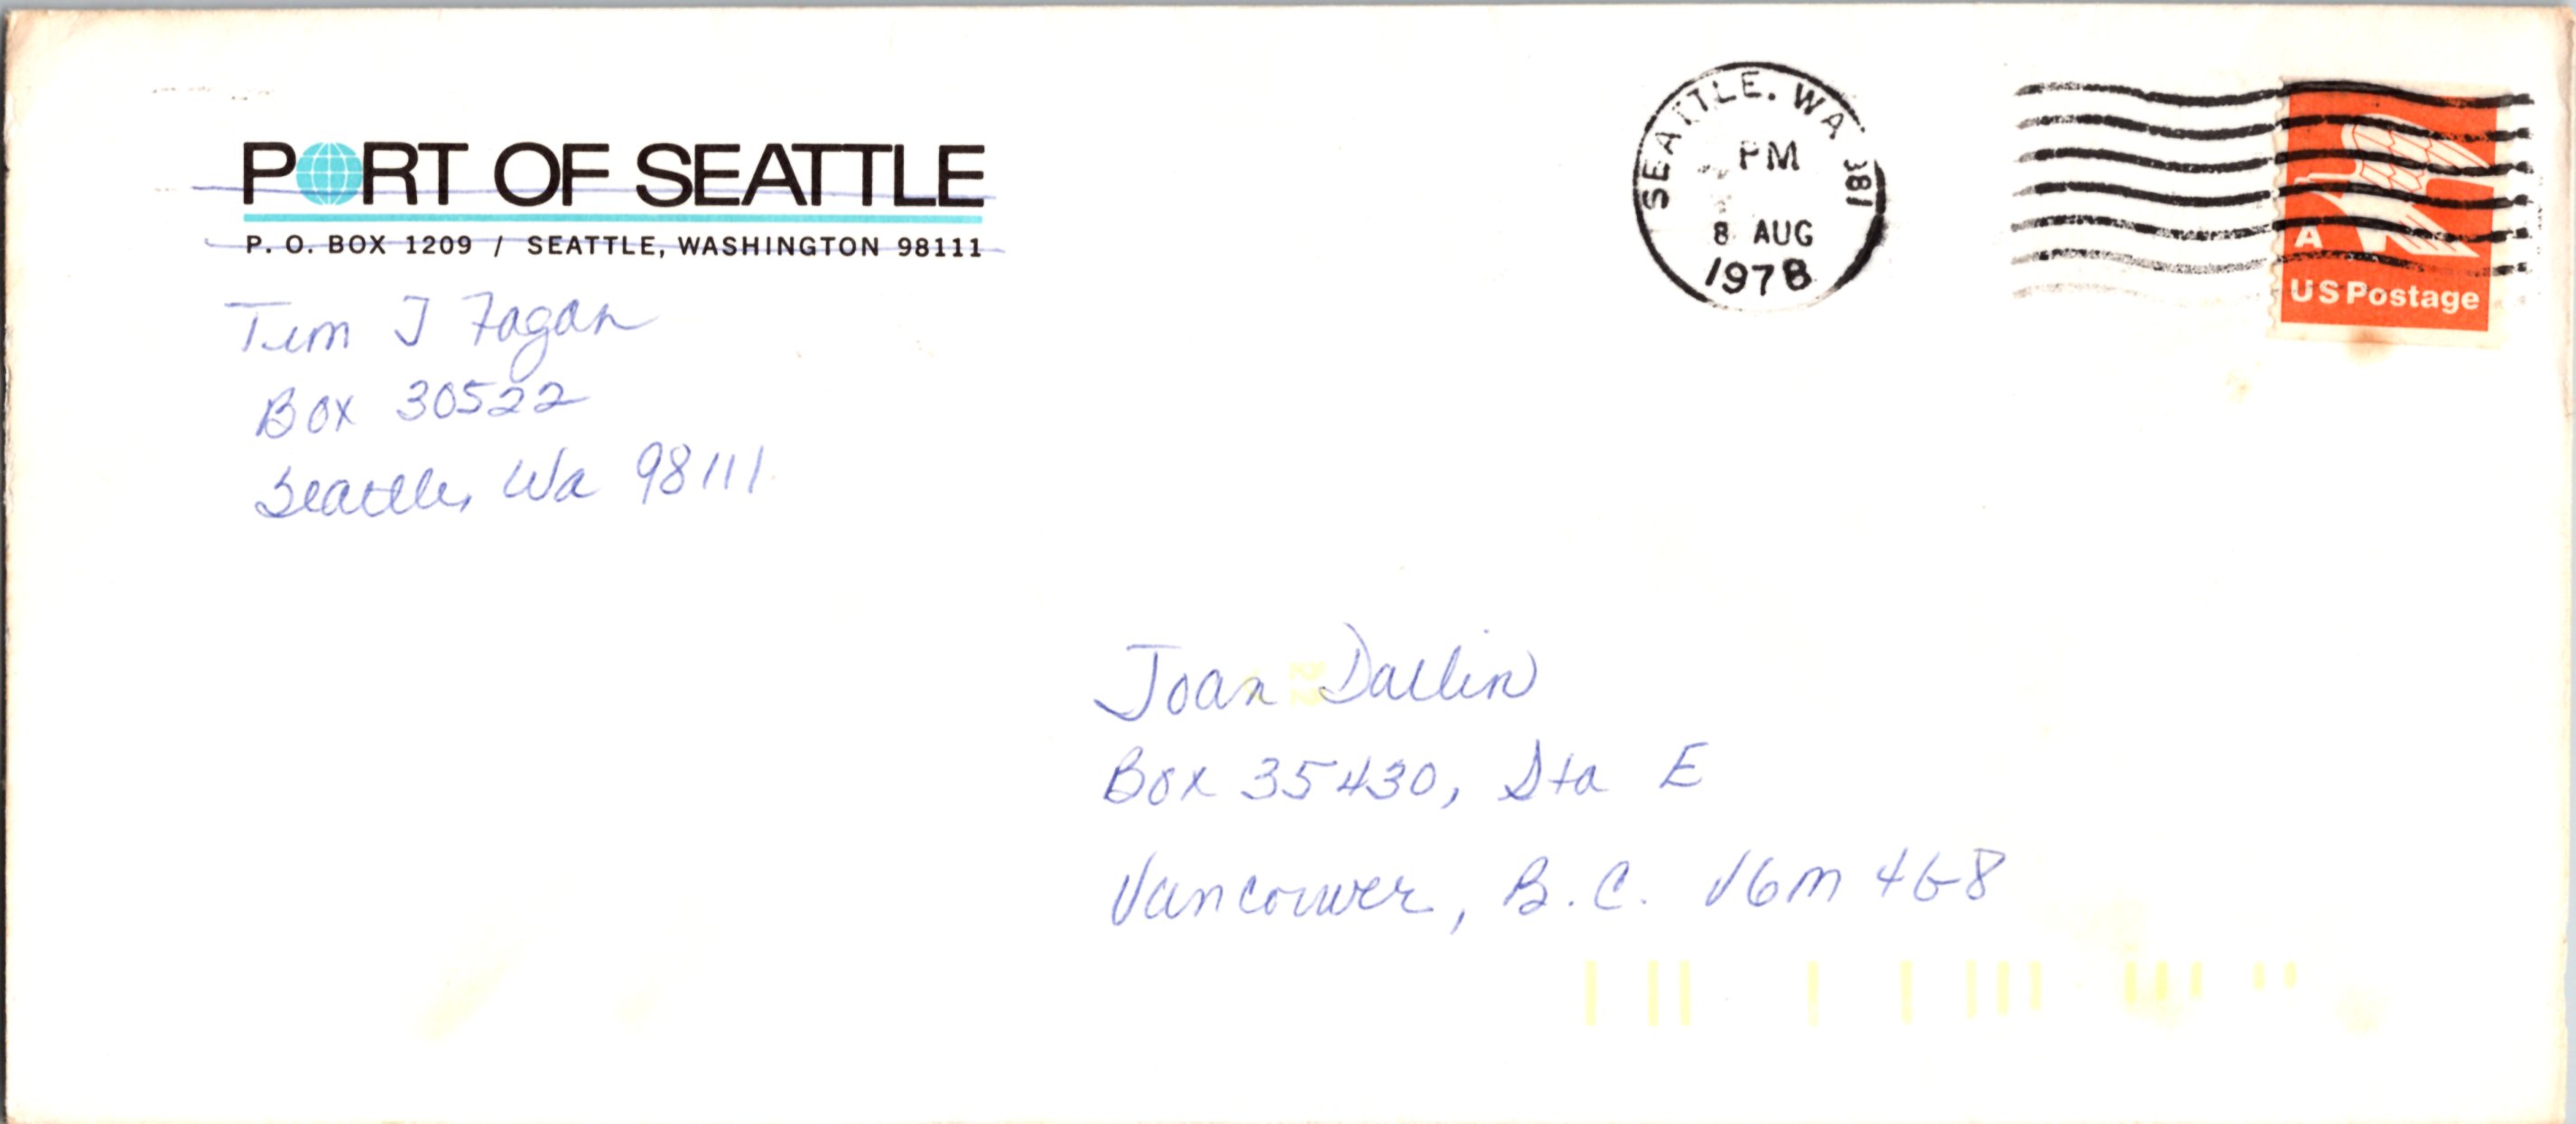 PORT OF SEATTLE
P. O. BOX 1209 / SEATTLE, WASHINGTON 98111
Tim J Fagan
Box 30522
Seattle, Wa 98111
SEATTLE. WA 981
PM
8 AUG
1978
A
US Postage
Joan Dallin
Box 35430, Sta E
Vancouver, B.C. V6M 4G8